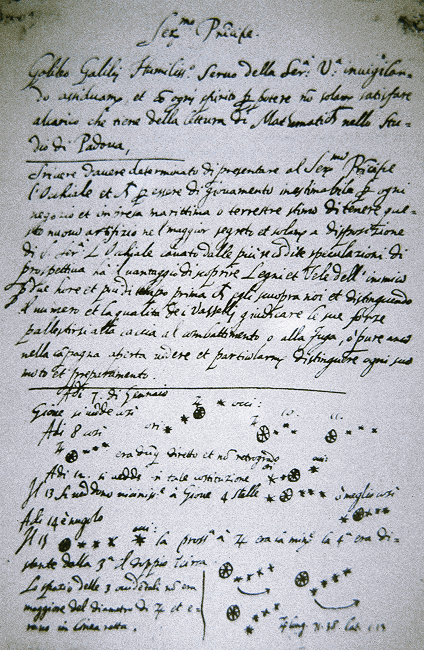 Ser.mo Principe.
Galileo Galilei Humiliss.o Servo della Ser.a V.a invigilan-
do assiduam.te, et con ogni spirito p potere nō solam.te satisfare
al carico che tiene della lettura di Matematica nello Stu-
dio di Padova,
Scrive d'avere determinato di presentare al Ser.mo Principe
l'Occhiale et p essere di giovamento inestimabile p ogni
negozio et impresa marittima o terrestre stima di tenere que-
sto nuovo artifizio nel maggior segreto et solam.te a disposizione
di S. Ser.tà L'Occhiale cavato dalle più recondite speculazioni di
prospettiva ha il vantaggio di scoprire Legni et Vele dell'inimico
p due hore et più di tempo prima ch'egli scuopra noi et distinguendo
il numero et la qualità dei Vasselli giudicare le sue forze
pallestirsi alla caccia al combattimento o alla fuga, o pure anco
nella capagna aperta vedere et particolarm.te distinguere ogni suo
moto et preparamento.
Adi 7. di Gennaio
Giove si vede così
Adi 8 così
era dūq diretto et nō retrogrado
Adi 12. si vedde in tale costituzione
Il 13 si veddono vicinissi.e à Giove 4 stelle ò meglio così
Adi 14 è nugolo
Il 15 la pross.a à 4 era la min.e la 4.a era di-
stante dalla 3.a il doppio circa
Lo spazio delle 3 occidentali nō era
maggiore del diametro di 4 et e-
rano in linea retta.